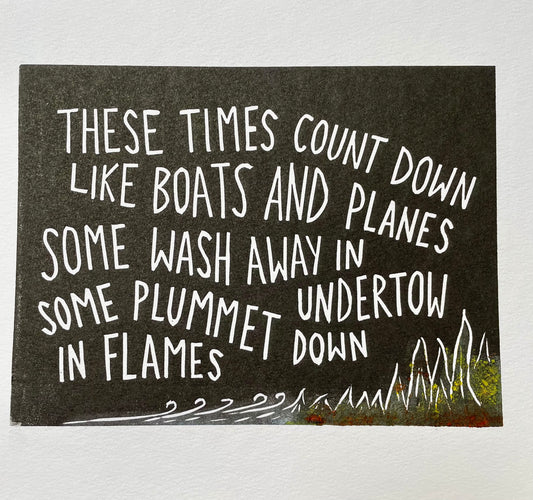 THESE TIMES COUNT DOWN
LIKE BOATS AND PLANES
SOME WASH AWAY IN UNDERTOW
SOME PLUMMET DOWN
IN FLAMES